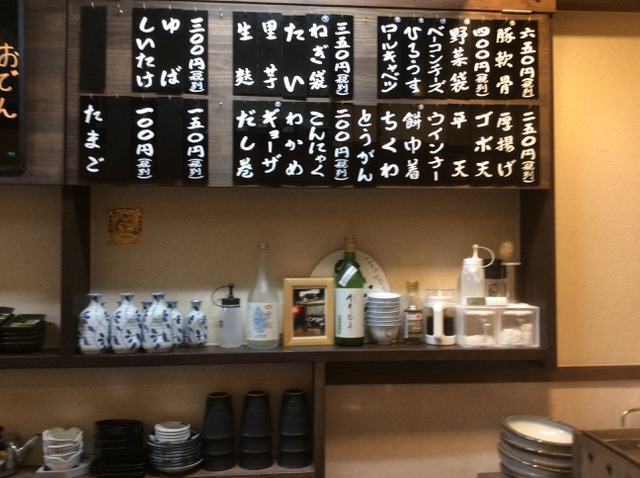 おでん
六五〇円(税別)
豚軟骨
四〇〇円(税別)
野菜袋
ベーコンチーズ
ひろうす
ロールキャベツ
三五〇円(税別)
ねぎ袋
たい
里芋
生麩
三〇〇円(税別)
ゆば
しいたけ
二五〇円(税別)
厚揚げ
ゴボ天
平天
ウインナー
餅巾着
ちくわ
とうがん
二〇〇円(税別)
こんにゃく
わかめ
ギョーザ
だし巻
一五〇円(税別)
一〇〇円(税別)
たまご